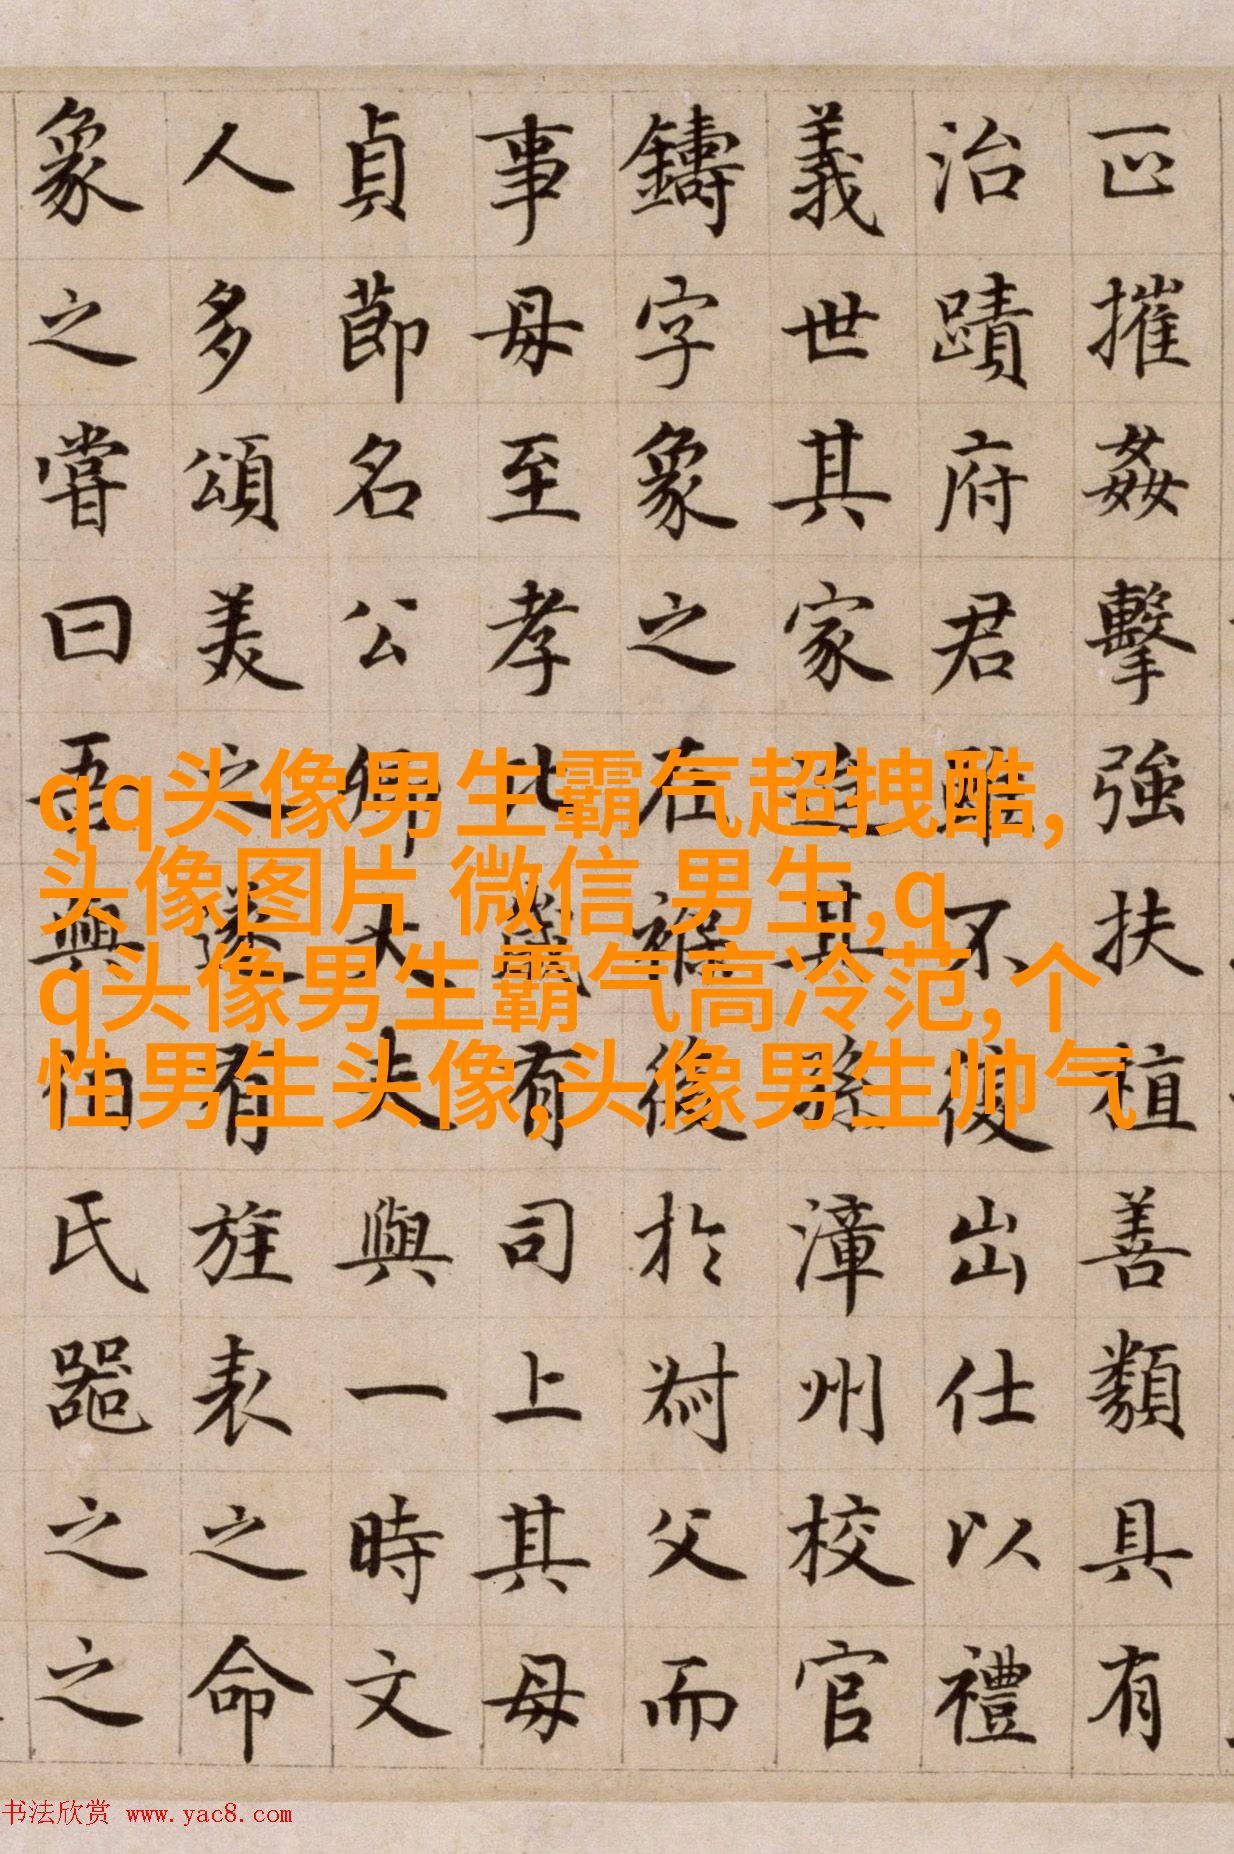 摧姦擊強扶植善類具有
治蹟府君雖不復出仕以禮
義世其家迨其孫漳州校官
鑄字象之在褓後於父而
事母至孝比歲有司上其母
貞節名公卿大夫與一時文
人多頌美之遂有旌表之命
象之嘗曰吾與伯氏噐之之
qq头像男生霸气超拽酷,
头像图片 微信 男生,q
q头像男生霸气高冷范,个
性男生头像,头像男生帅气
书法欣赏 www.yac8.com